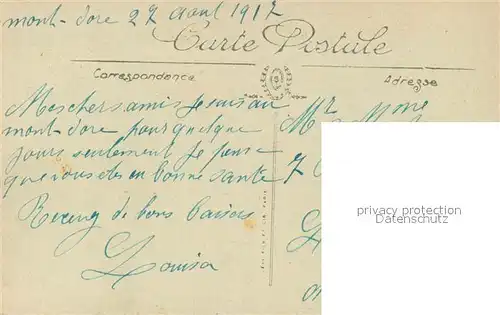 mont-dore 27 Aout 1917
Carte Postale
Correspondance
Adresse
Mes chers amis Je suis au
mont d'ore pour quelque
jours seulement je pense
que vous etes en bonne santé
Recevez de bons baisers
Louisa
Mr Mme
7
privacy protection
Datenschutz